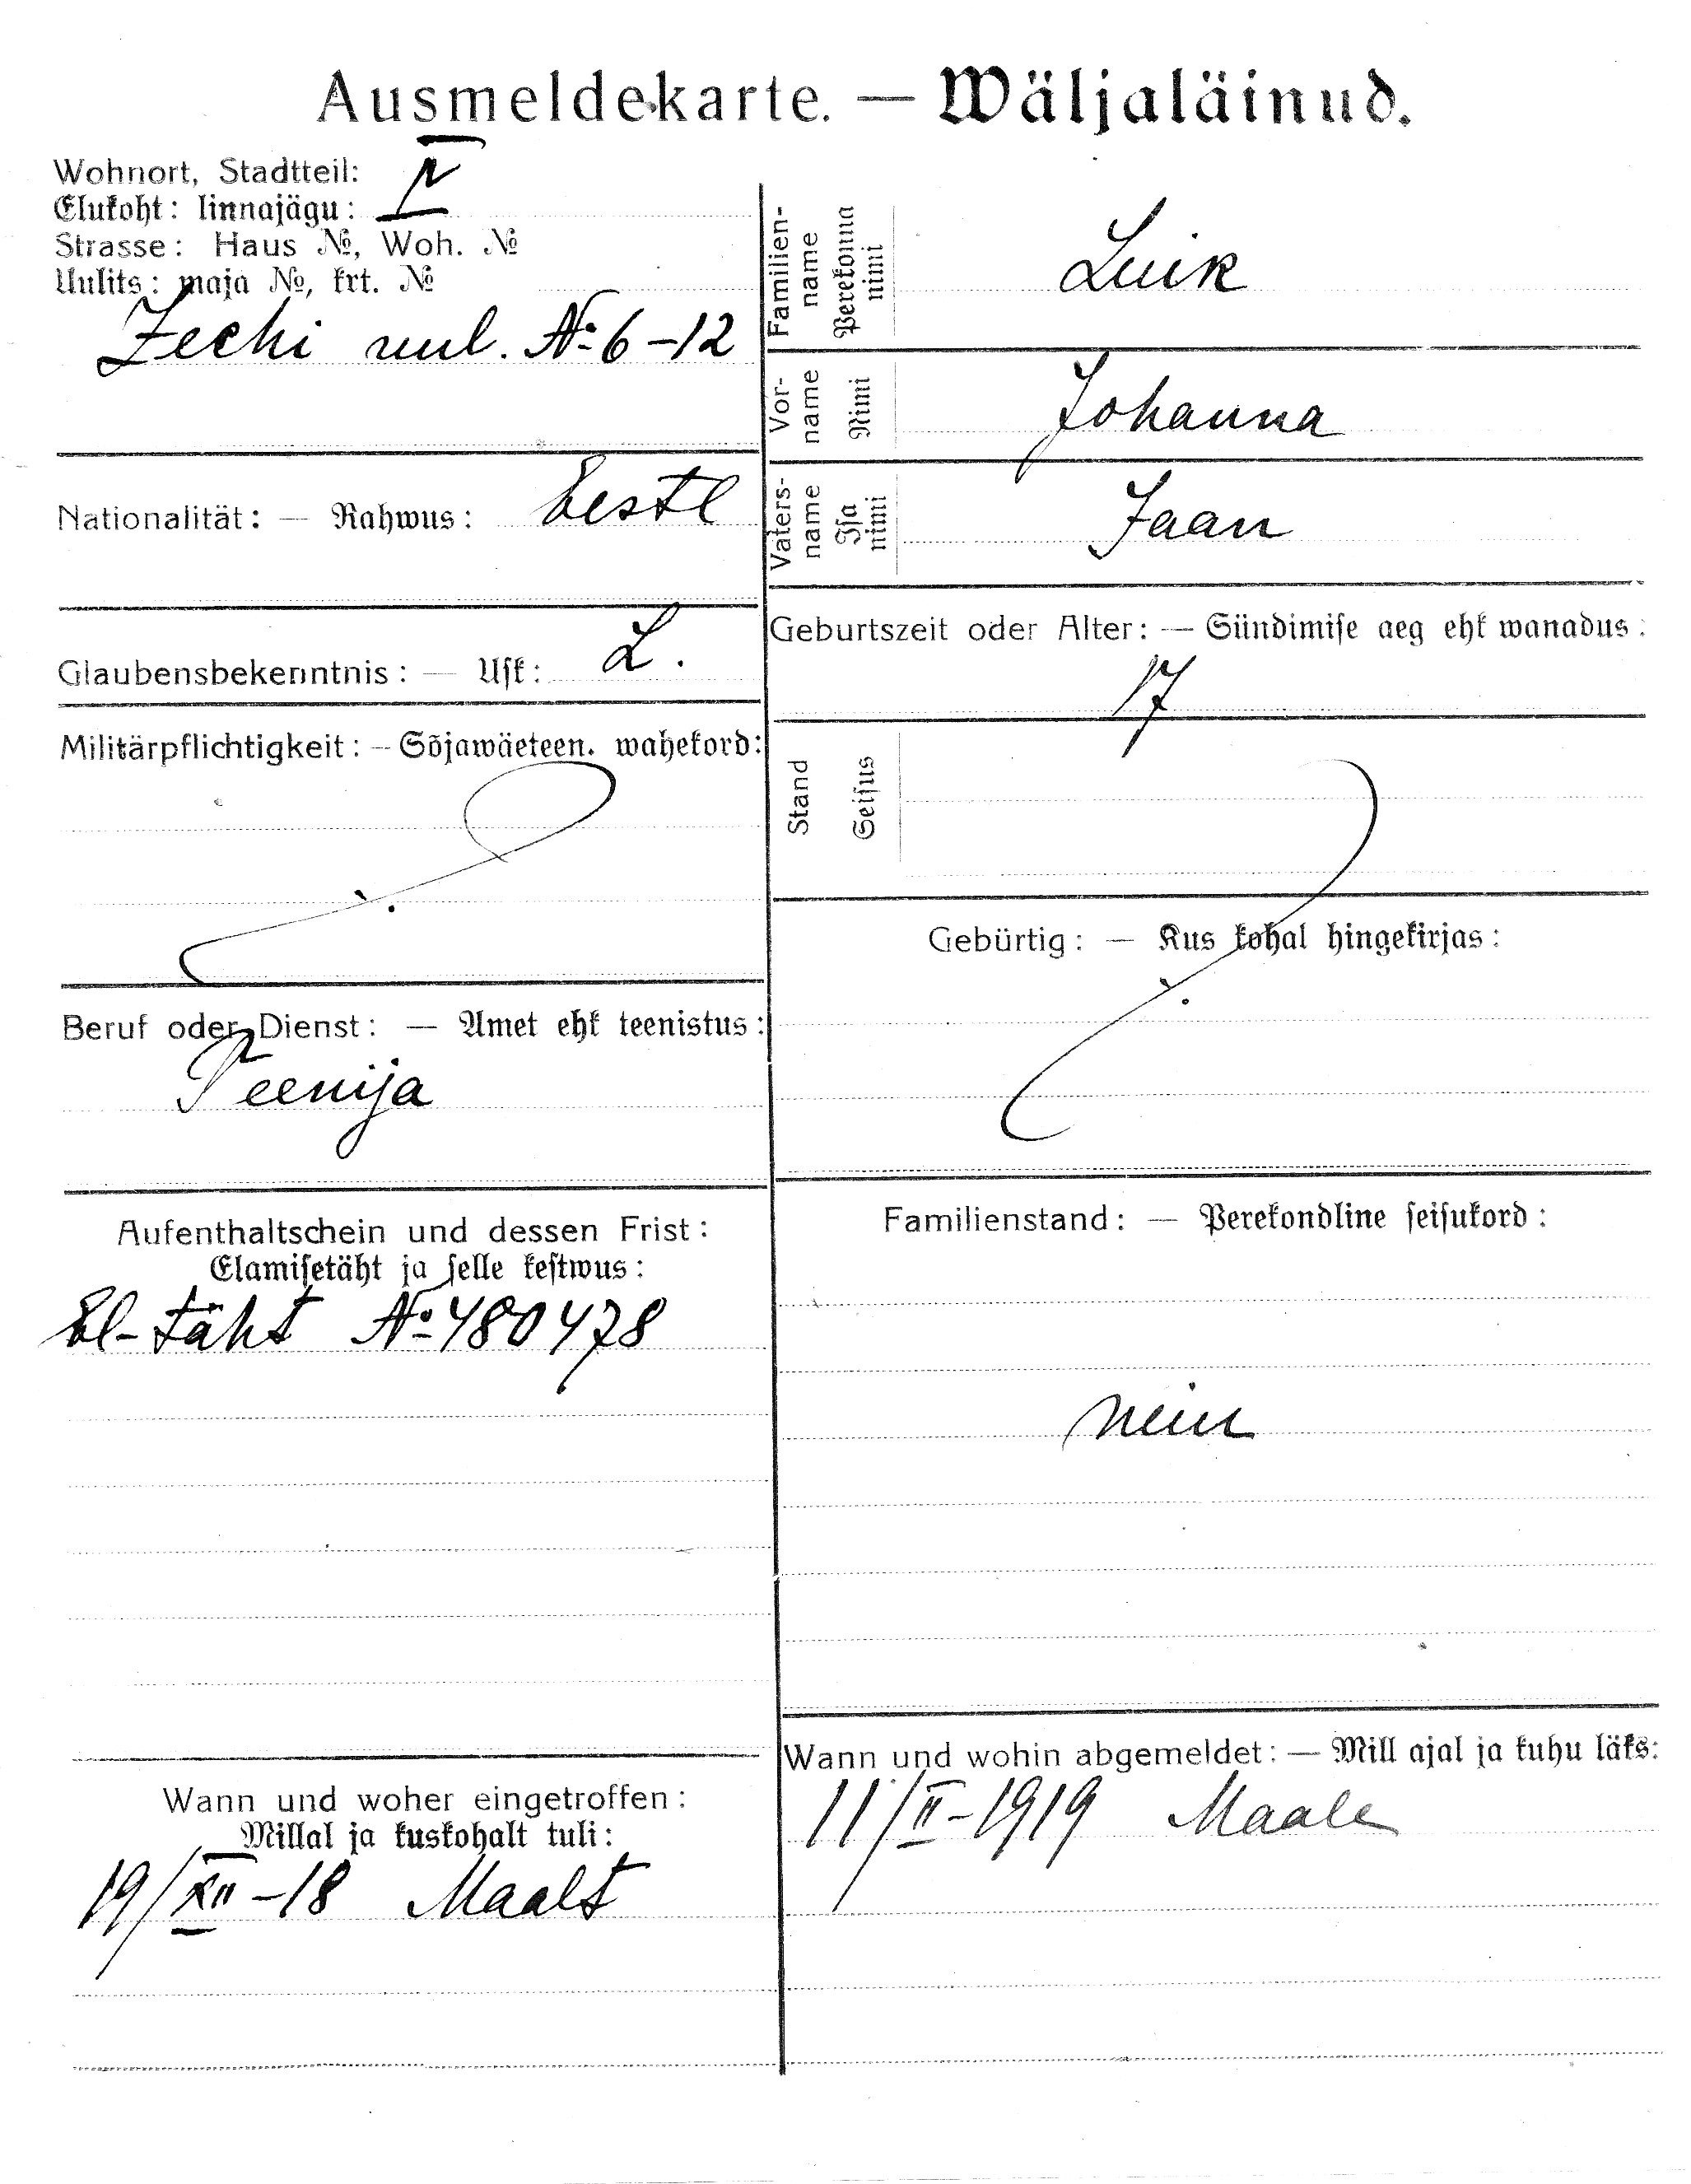 Ausmeldekarte. — Wäljaläinud.
Wohnort, Stadtteil:
Elukoht: linnajägu: IV
Strasse: Haus №, Woh. №
Uulits: maja №, krt. №
Zechi uul. № 6-12
Nationalität: — Rahwus: Eestl
Glaubensbekenntnis: — Usk: L.
Militärpflichtigkeit: — Sõjawäeteen. wahekord:
Beruf oder Dienst: — Amet ehk teenistus:
Teenija
Aufenthaltschein und dessen Frist:
Elamisetäht ja selle kestwus:
El-täht № 480478
Wann und woher eingetroffen:
Millal ja kuskohalt tuli:
19/XII-18 Maalt
Familien-
name
Perekonna
nimi
Luik
Vor-
name
Nimi
Johanna
Vaters-
name
Isa
nimi
Jaan
Geburtszeit oder Alter: — Sündimise aeg ehk wanadus:
17
Stand
Seisus
Gebürtig: — Kus kohal hingekirjas:
Familienstand: — Perekondline seisukord:
nein
Wann und wohin abgemeldet: — Mill ajal ja kuhu läks:
11/II-1919 Maale